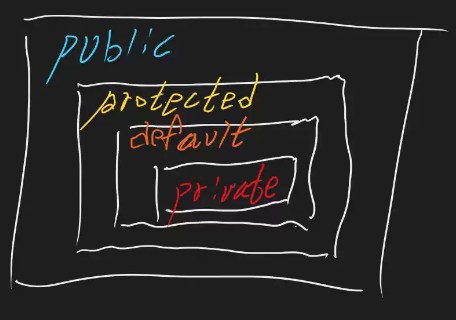 public
protected
default
private